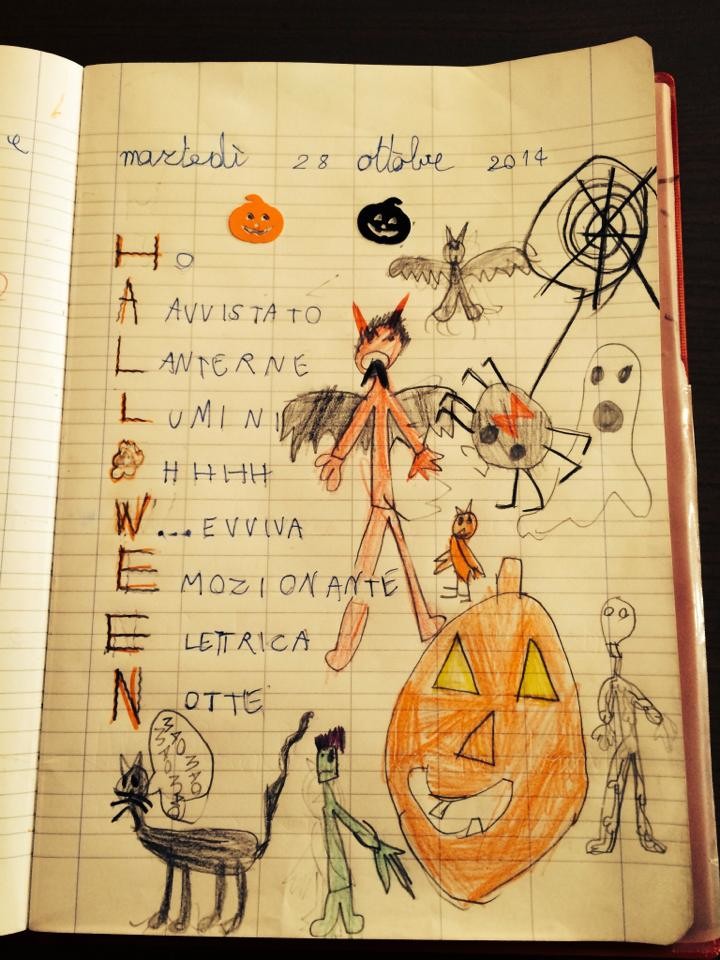 martedì 28 ottobre 2014
HO
AVVISTATO
LANTERNE
LUMINI
OHHHHH
W...EVVIVA
EMOZIONANTE
ELETTRICA
NOTTE
MIAO MIAO MIAO